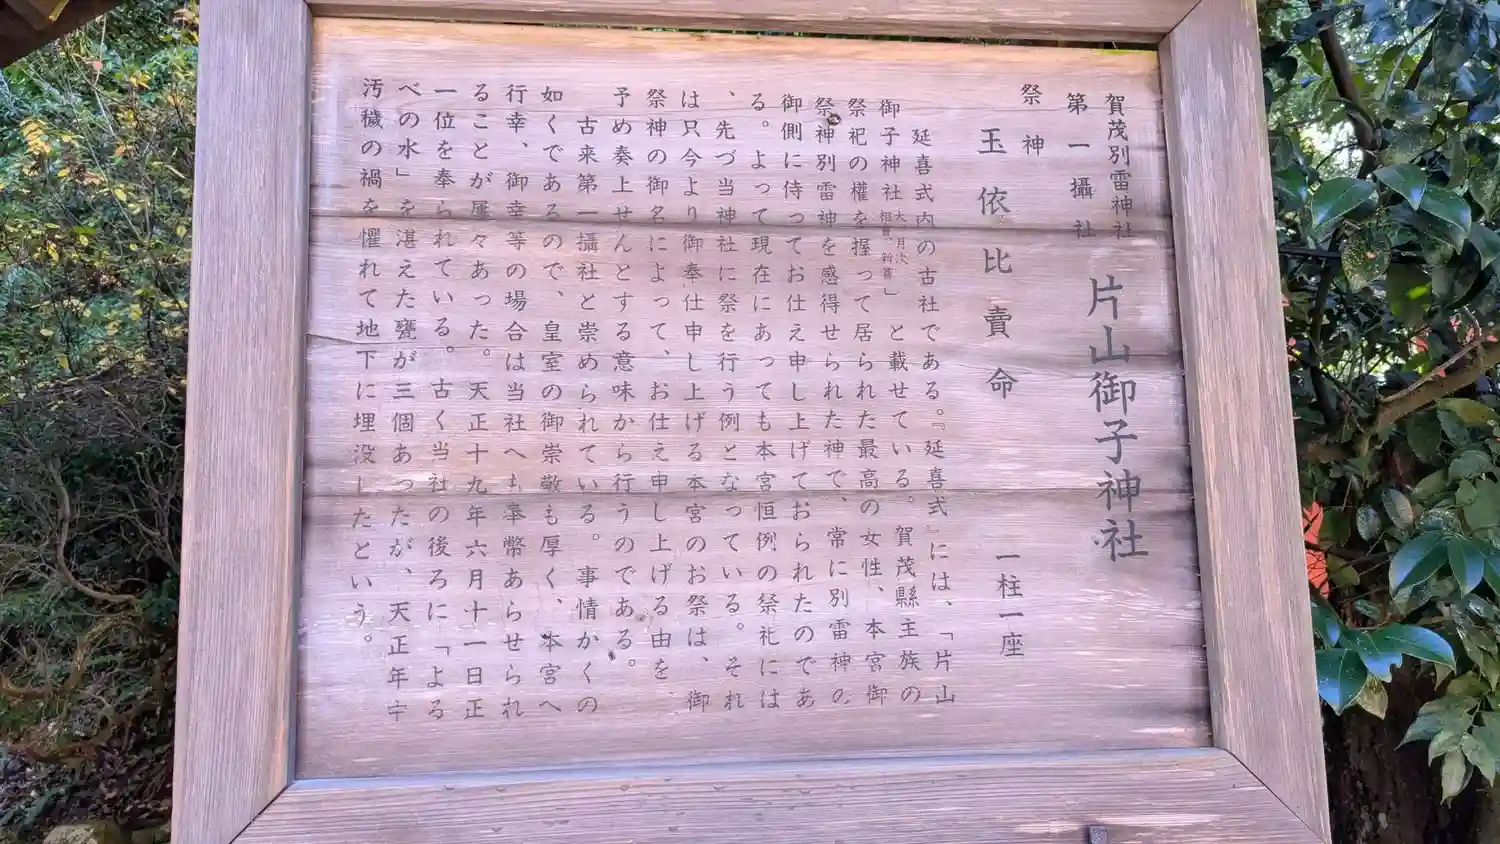 賀茂別雷神社
第一攝社
片山御子神社
祭神
玉依比賣命
一柱一座
延喜式内の古社である。『延喜式』には、「片山
御子神社 大 月次 相嘗 新嘗」と載せている。賀茂縣主族の
祭祀の權を握って居られた最高の女性、本宮御
祭神別雷神を感得せられた神で、常に別雷神の
御側に侍ってお仕え申し上げておられたのであ
る。よって現在にあっても本宮恒例の祭礼には
、先づ当神社に祭を行う例となっている。それ
は只今より御奉仕申し上げる本宮のお祭は、御
祭神の御名によって、お仕え申し上げる由を
予め奏上せんとする意味から行うのである。
古来第一攝社と崇められている。事情かくの
如くであるので、皇室の御崇敬も厚く、本宮へ
行幸、御幸等の場合は当社へも奉幣あらせられ
ることが屡々あった。天正十九年六月十一日正
一位を奉られている。古く当社の後ろに「よる
べの水」を湛えた甕が三個あったが、天正年中
汚穢の禍を懼れて地下に埋没したという。